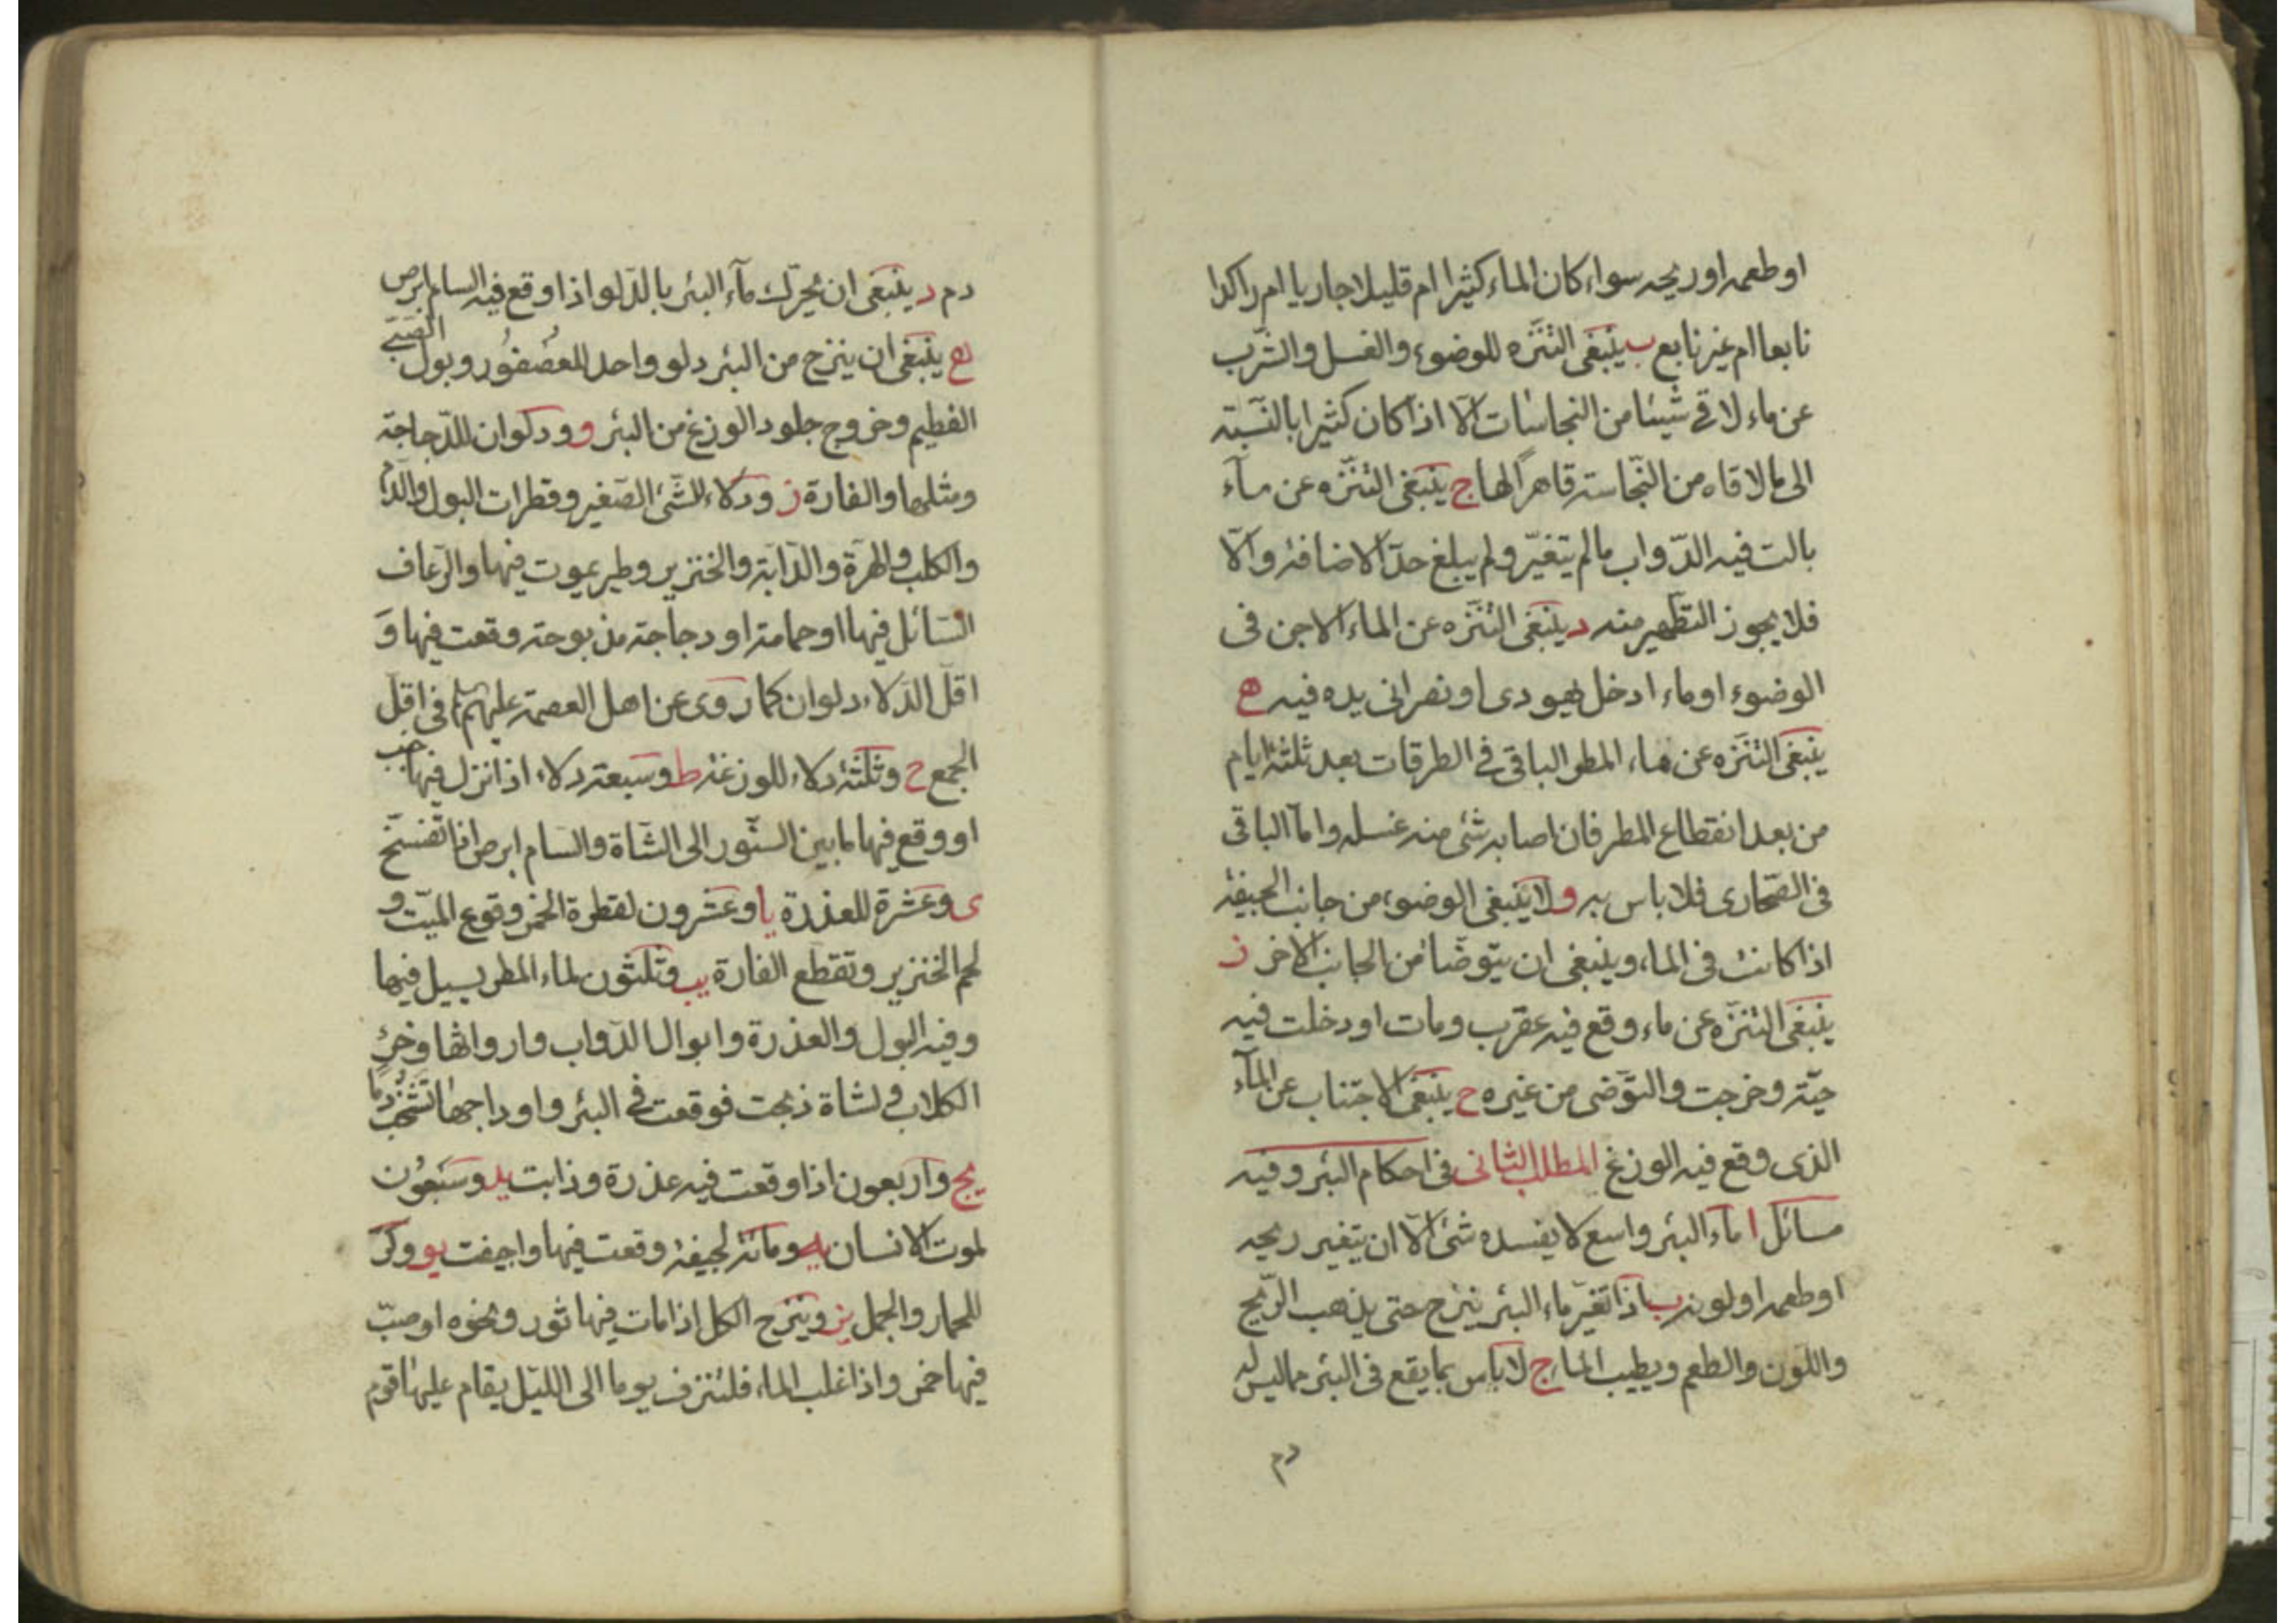 او طعمه او ريحه سواء كان الماء كثيرا ام قليلا جاريا ام راكدا
نابعا ام غير نابع ب ينبغى التنزه للوضوء والغسل والشرب
عن ماء لاقى شيئا من النجاسات الا اذا كان كثيرا بالنسبة
الى ما لاقاه من النجاسة قاهرا لها ج ينبغى التنزه عن ماء
بالت فيه الدواب ما لم يتغير ولم يبلغ حد الاضافة والا
فلا يجوز التطهير منه د ينبغى التنزه عن الماء الاجن فى
الوضوء او ماء ادخل يهودى او نصرانى يده فيه ه
ينبغى التنزه عن ماء المطر الباقى فى الطرقات بعد ثلثة ايام
من بعد انقطاع المطر فان اصابه شئ منه غسله واما الباقى
فى الصحارى فلا باس به و لا ينبغى الوضوء من جانب الجيفة
اذا كانت فى الماء وينبغى ان يتوضأ من الجانب الاخر ز
ينبغى التنزه عن ماء وقع فيه عقرب ومات او دخلت فيه
حية وخرجت والتوضى من غيره ح ينبغى الاجتناب عن الماء
الذى وقع فيه الوزغ المطلب الثانى فى احكام البئر وفيه
مسائل ا ماء البئر واسع لا يفسده شئ الا ان يتغير ريحه
او طعمه او لونه ب اذا تغير ماء البئر ينزح حتى يذهب الريح
واللون والطعم ويطيب الماء ج لا باس بما يقع فى البئر مما ليس له
دم
دم د ينبغى ان يحرك ماء البئر بالدلو اذا وقع فيه السام ابرص
ه ينبغى ان ينزح من البئر دلو واحد للعصفور وبول الصبى
الفطيم وخروج جلود الوزغ من البئر و ودلوان للدجاجة
ومثلها والفارة ز ودلاء للشئ الصغير وقطرات البول والدم
والكلب والهرة والدابة والخنزير وطير يموت فيها والرعاف
السائل فيها او حمامة او دجاجة مذبوحة وقعت فيها و
اقل الدلاء دلوان كما روى عن اهل العصمة عليهم فى اقل
الجمع ح وثلثة دلاء للوزغة ط وسبعة دلاء اذا نزل فيها جنب
او وقع فيها ما بين السنور الى الشاة والسام ابرص اذا تفسخ
ى وعشرة للعذرة يا وعشرون لقطرة الخمر وقوع الميت و
لحم الخنزير وتقطع الفارة يب وثلثون لماء المطر يسيل فيها
وفيه البول والعذرة وابوال الدواب وارواثها وخرء
الكلاب ولشاة ذبحت فوقعت فى البئر واوداجها تشخب دما
يج واربعون اذا وقعت فيه عذرة وذابت يد وسبعون
لموت الانسان يه ومائة لجيفة وقعت فيها واجيفت يو وكر
للحمار والجمل يز وينزح الكل اذا مات فيها ثور ونحوه او صب
فيها خمر واذا غلب الماء فلتنزف يوما الى الليل يقام عليها قوم